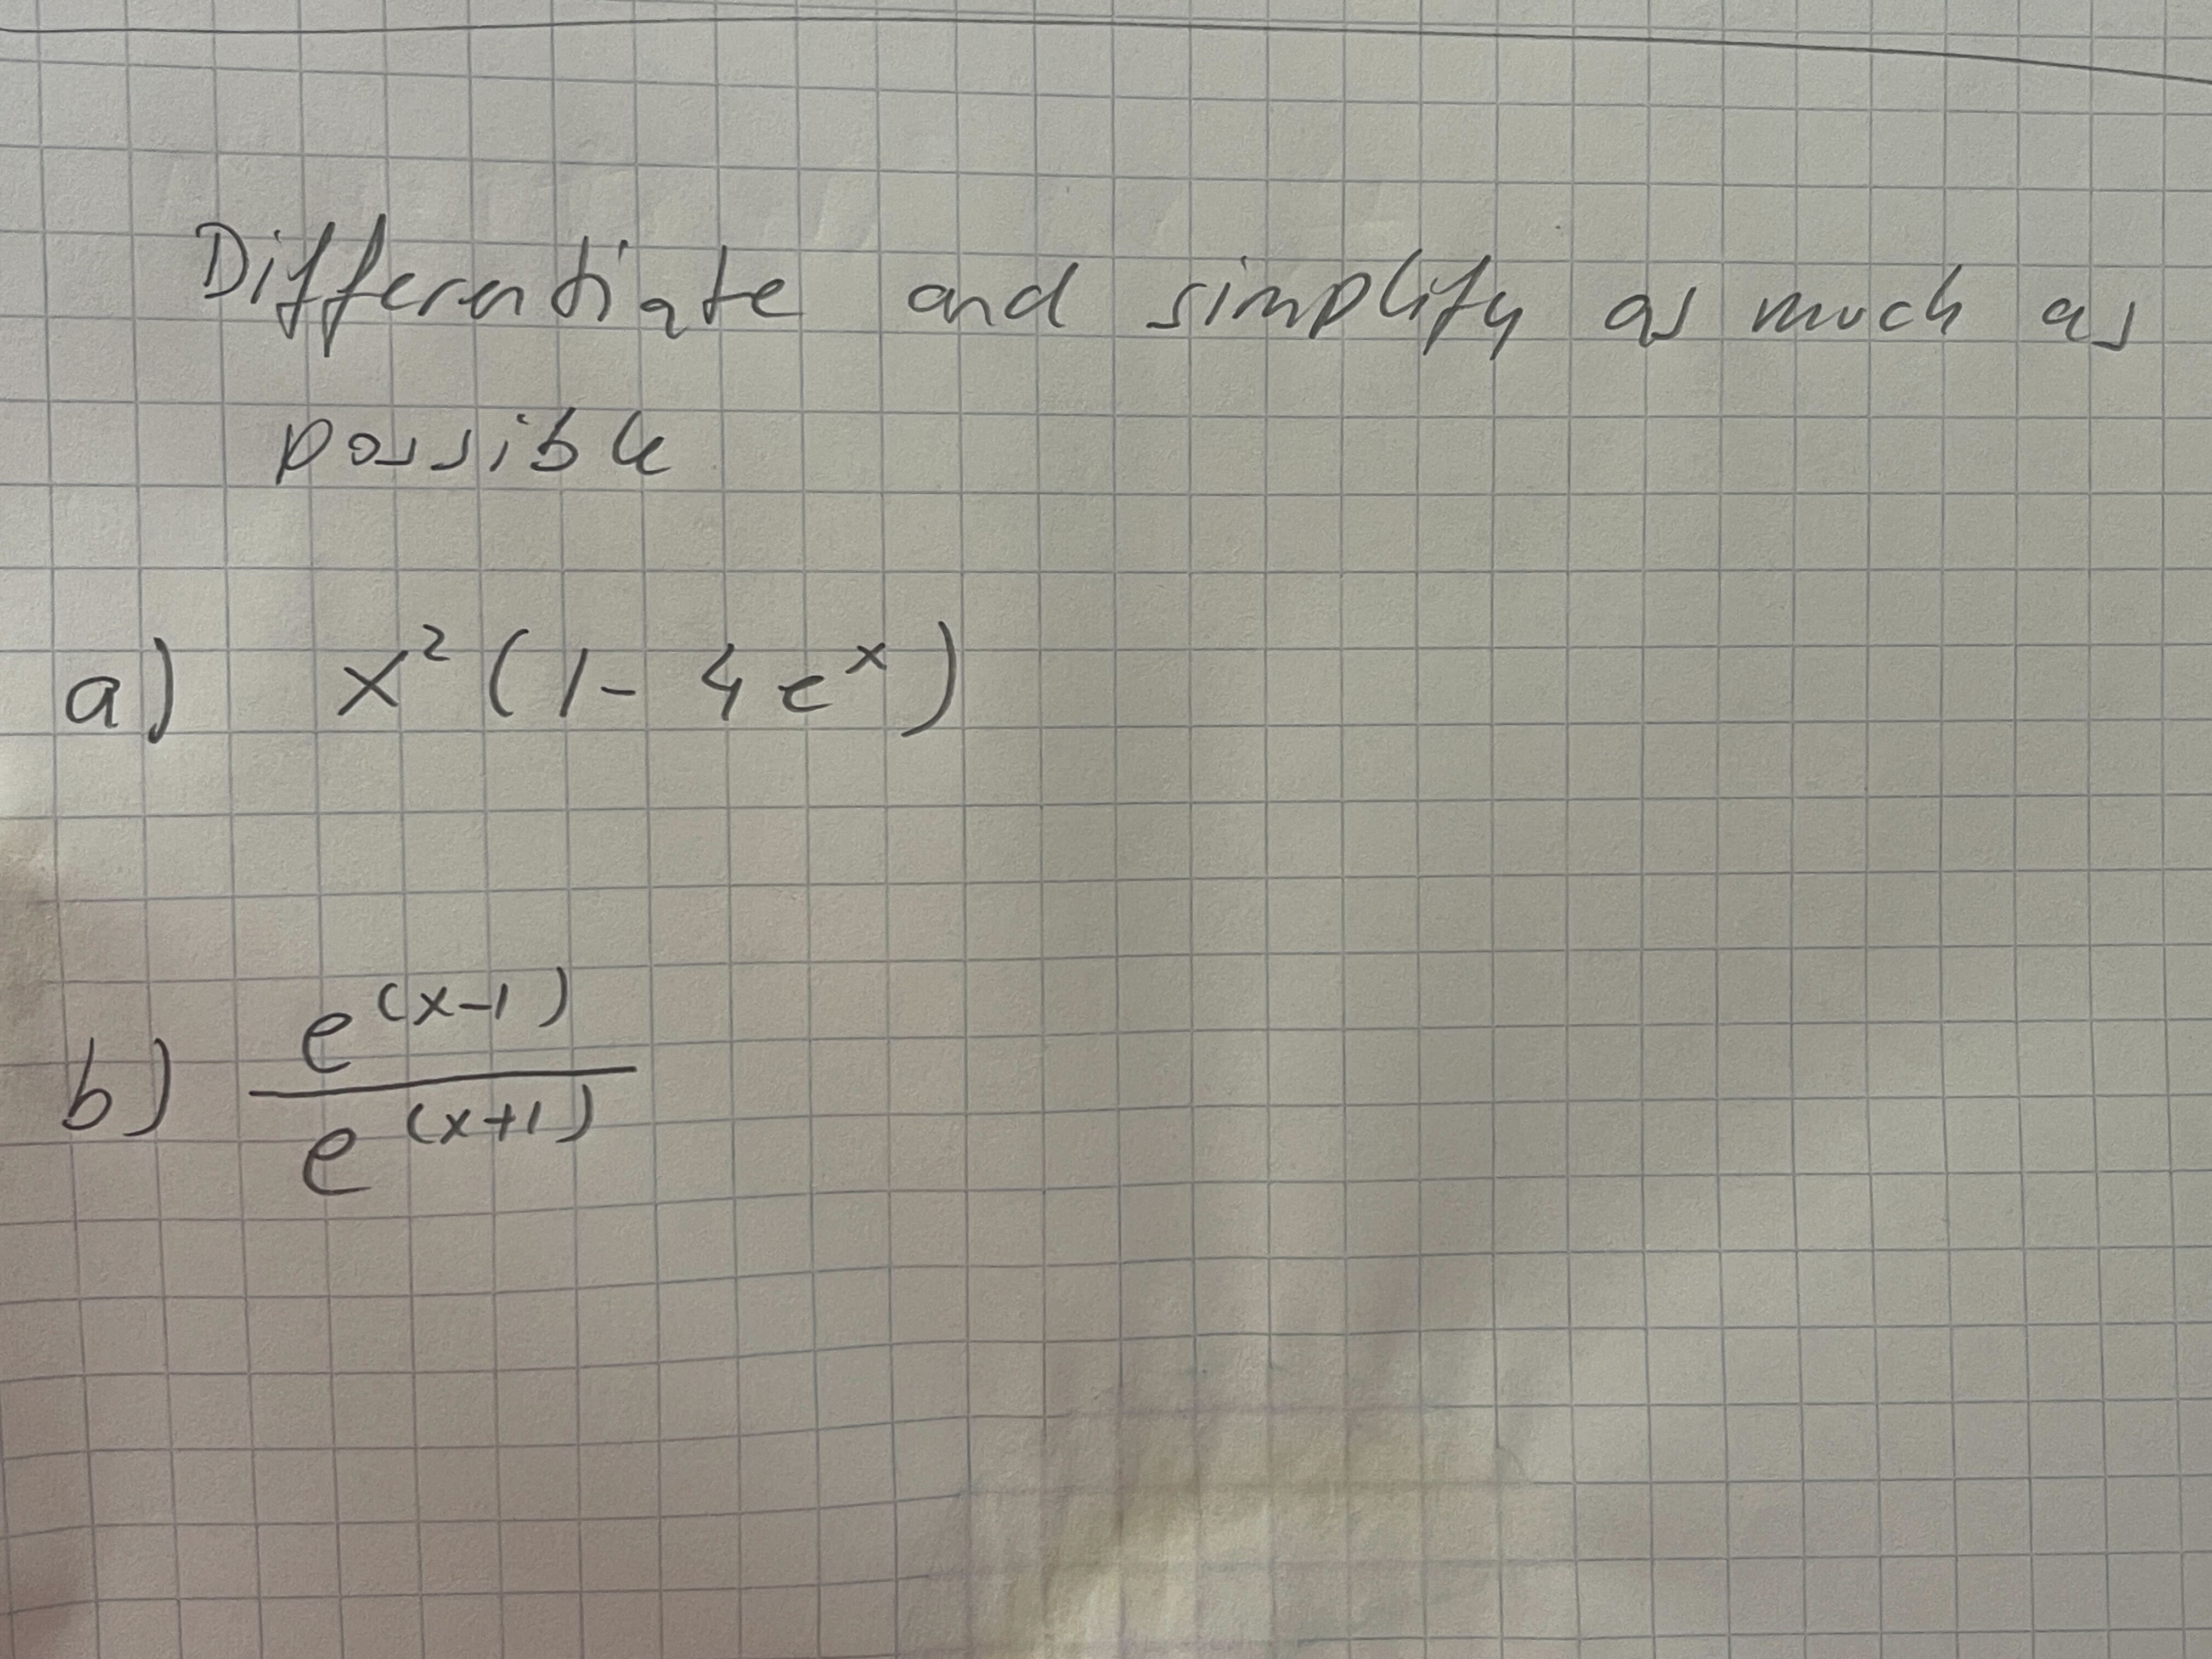 Differentiate and simplify as much as
possible
a) x² (1 - 4e^x)
b) e^(x-1) / e^(x+1)